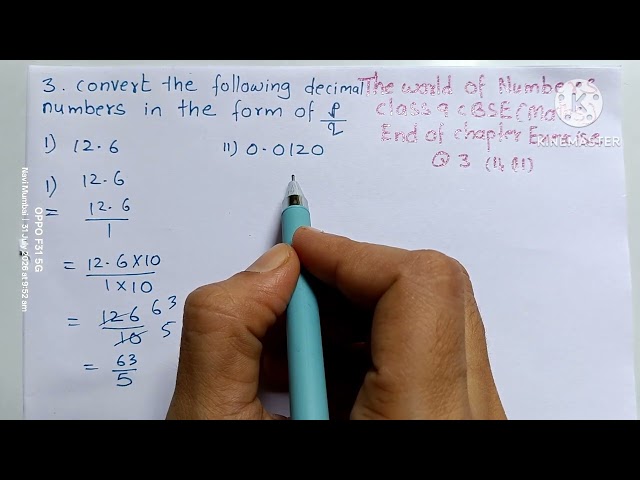 3. convert the following decimal
numbers in the form of p/q
The world of Numbers
class 9 CBSE (Maths)
End of chapter Exercise
Q 3 (I, II)
KINEMASTER
I) 12.6
II) 0.0120
I) 12.6
= 12.6/1
= 12.6×10/1×10
= 126/10 63 5
= 63/5
OPPO F31 5G
Navi Mumbai | 31 July 2026 at 9:52 am